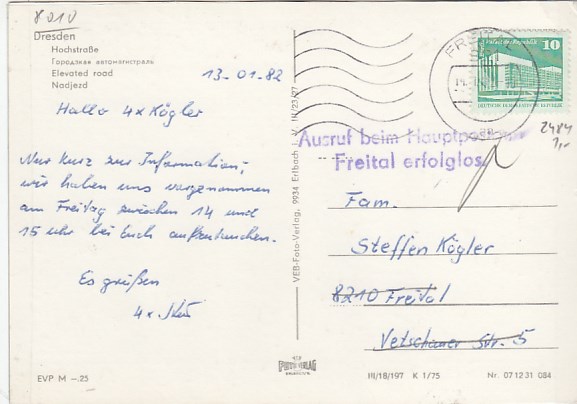 8010
Dresden
Hochstraße
Городская автомагистраль
Elevated road
Nadjezd
13-01-82
Hallo 4x Kögler
Nur kurz zur Information,
wir haben uns vorgenommen
am Freitag zwischen 14 und
15 Uhr bei Euch aufzutauchen.
Es grüßen
4x
EVP M –.25
VEB-Foto-Verlag, 9934 Erlbach i. V. III/23/27
FREITAL
Palast der Republik 10
2484
1,-
Ausruf beim Hauptpostamt
Freital erfolglos
Fam.
Steffen Kögler
8210 Freital
Vetschauer Str. 5
FOTO-VERLAG
III/18/197 K 1/75 Nr. 07 12 31 084